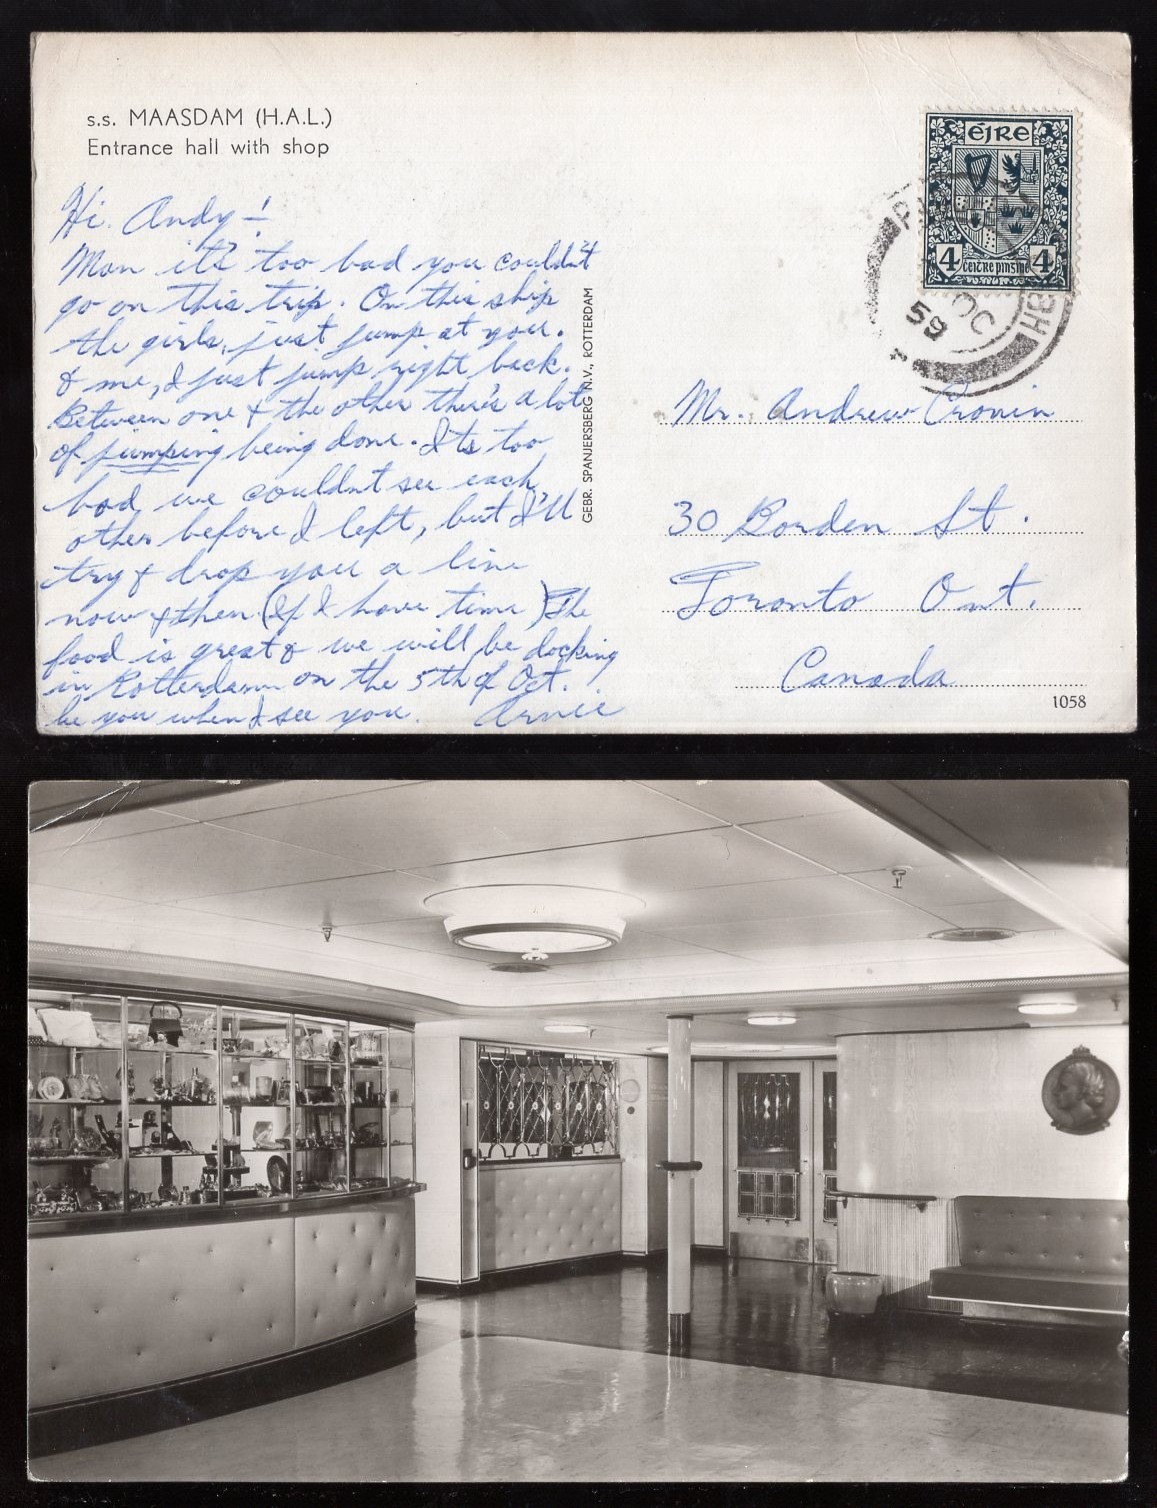 s.s. MAASDAM (H.A.L.)
Entrance hall with shop
Hi. Andy!
Man it's too bad you couldn't
go on this trip. On this ship
the girls, just jump at you.
& me, I just jump right back.
Between one & the other there's a lot
of jumping being done. Its too
bad we couldnt see each
other before I left, but I'll
try & drop you a line
now & then (If I have time) The
food is great & we will be docking
in Rotterdamn on the 5th of Oct.
be you when I see you. Arnie
GEBR. SPANJERSBERG N.V., ROTTERDAM
ÉIRE
4 ceitre pinsine 4
59
Mr. Andrew Cronin
30 Borden St.
Toronto Ont.
Canada
1058